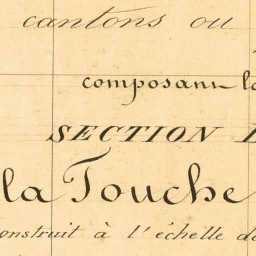 cantons ou
composant la
SECTION
la Touche
onstruit à l'échelle de